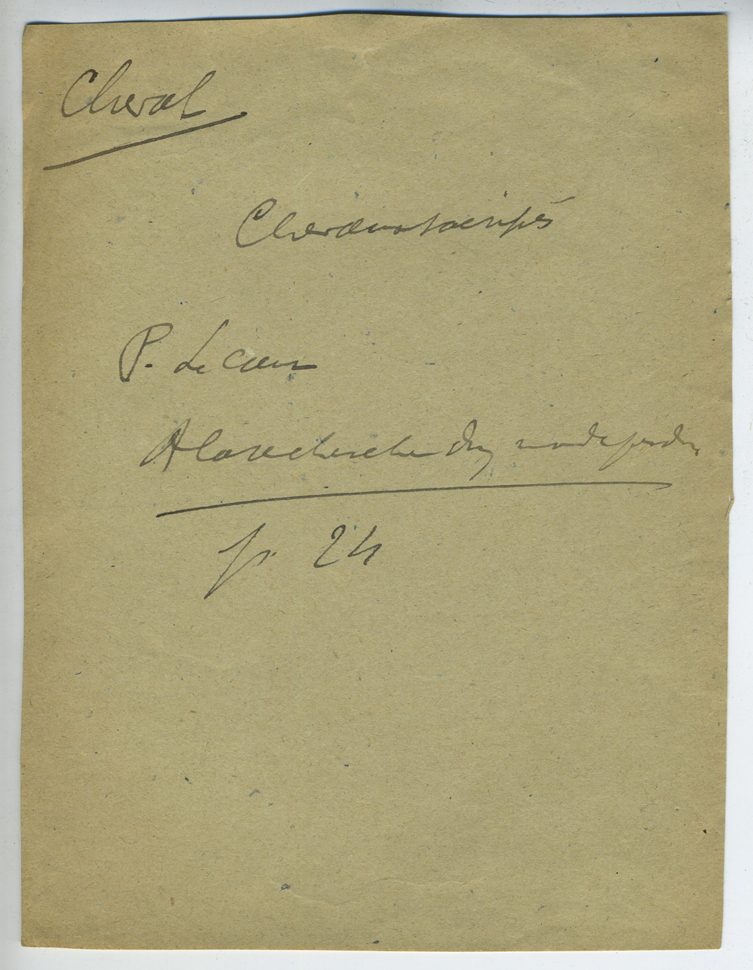 Cheval
Chevaux
P. Le Cœur
A la recherche d'un monde perdu
p. 24